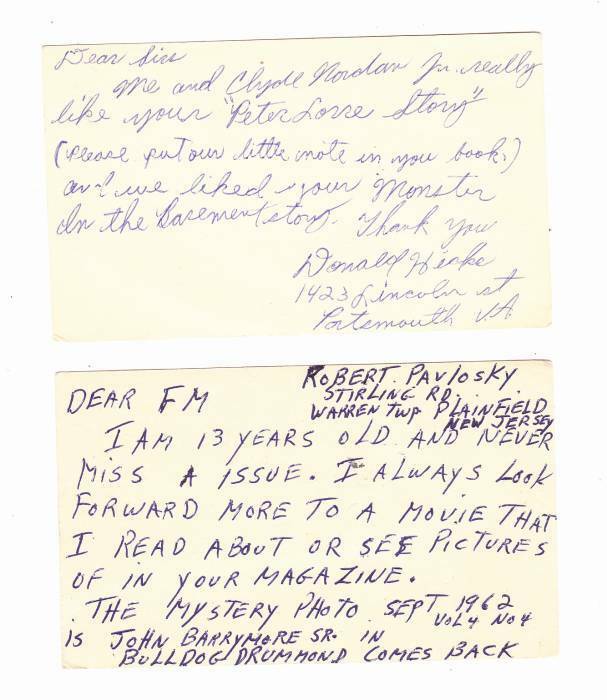 Dear Sirs
Me and Clyde Nordan Jr. really
like your "Peter Lorre Story"
(please put our little note in you book.)
and we liked your Monster
In the Basement story. Thank you
Donald
1423 Lincoln st
Portsmouth V.A
ROBERT PAVLOSKY
STIRLING RD.
WARREN TWP PLAINFIELD
NEW JERSEY
DEAR FM
I AM 13 YEARS OLD AND NEVER
MISS A ISSUE. I ALWAYS LOOK
FORWARD MORE TO A MOVIE THAT
I READ ABOUT OR SEE PICTURES
OF IN YOUR MAGAZINE.
THE MYSTERY PHOTO SEPT 1962
VOL 4 NO 4
IS JOHN BARRYMORE SR. IN
BULLDOG DRUMMOND COMES BACK